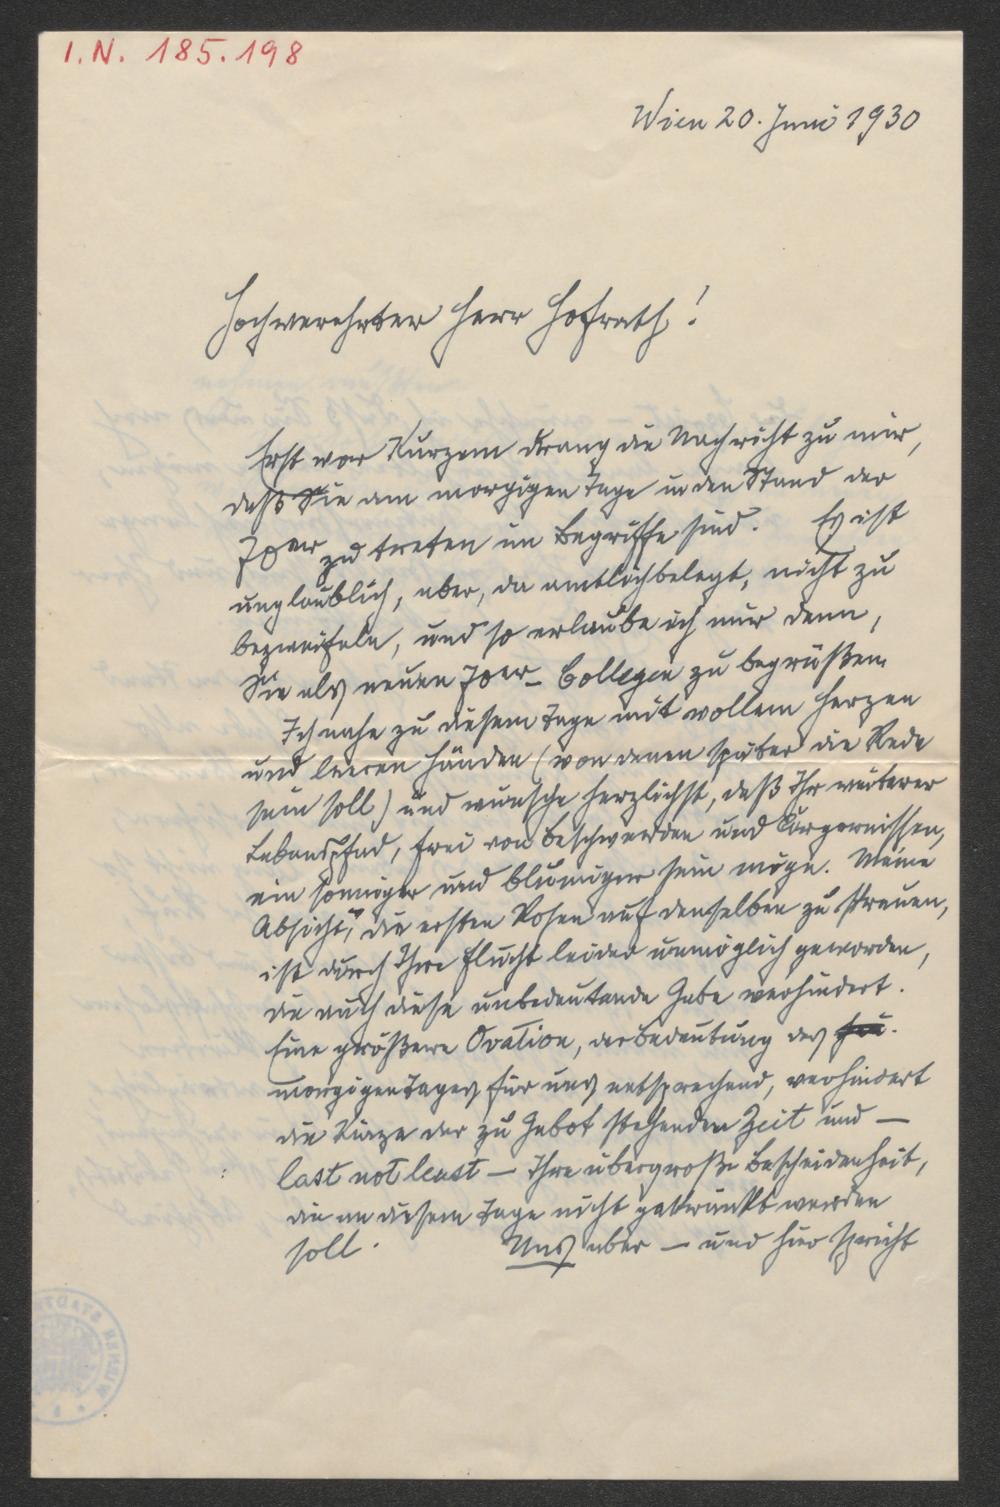 I.N. 185.198
Wien 20. Juni 1930
Hochverehrter Herr Hofrath!
Erst vor Kurzem drang die Nachricht zu mir,
daß Sie am morgigen Tage in den Stand der
70er zu treten im Begriffe sind. Es ist
unglaublich, aber, da amtlich belegt, nicht zu
bezweifeln, und so erlaube ich mir denn,
Sie als neuen 70er-Collegen zu begrüßen.
Ich nahe zu diesem Tage mit vollem Herzen
und leeren Händen (von denen später die Rede
sein soll) und wünsche herzlichst, daß Ihr weiterer
Lebenspfad, frei von Beschwerden und Ärgernissen,
ein sonniger und blumiger sein möge. Meine
Absicht, die ersten Rosen auf denselben zu streuen,
ist durch Ihre Flucht leider unmöglich geworden,
die auch diese unbedeutende Gabe verhindert.
Eine größere Ovation, der Bedeutung des
morgigen Tages für uns entsprechend, verhindert
die Kürze der zu Gebot stehenden Zeit und —
last not least — Ihre übergroße Bescheidenheit,
die an diesem Tage nicht gekränkt werden
soll. Uns aber — und hier spricht
WIENER STADT